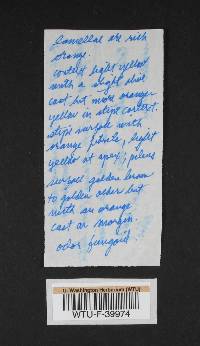 Lamellae are rich
orange.
context light yellow
with a slight olive
cast but more orange
yellow in stipe context.
stipe surface with
orange fibrils, light
yellow at apex; pileus
surface golden brown
to golden ocher but
with an orange
cast at margin.
odor fungoid
U. Washington Herbarium (WTU)
WTU-F-39974